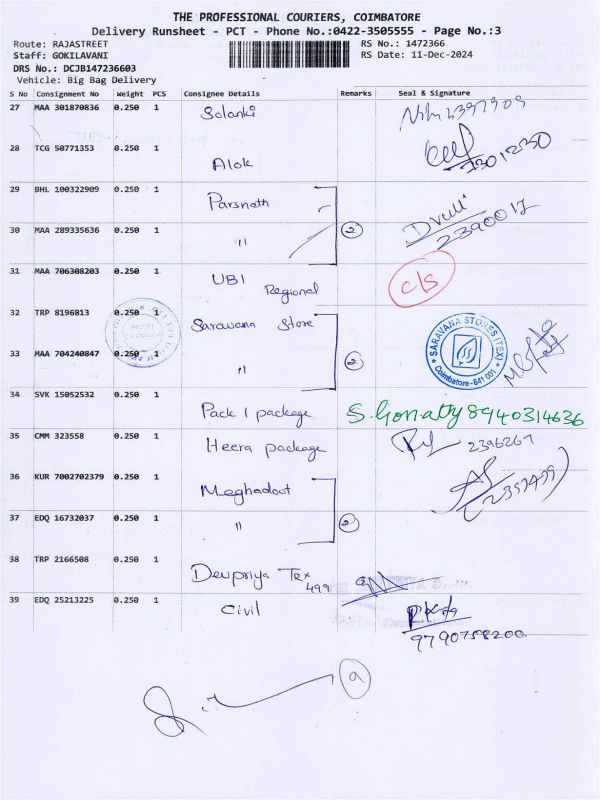 THE PROFESSIONAL COURIERS, COIMBATORE
Delivery Runsheet - PCT - Phone No.:0422-3505555 - Page No.:3
Route: RAJASTREET
RS No.: 1472366
Staff: GOKILAVANI
RS Date: 11-Dec-2024
DRS No.: DCJB147236603
Vehicle: Big Bag Delivery
S No Consignment No Weight PCS Consignee Details Remarks Seal & Signature
27 MAA 301870836 0.250 1 Solanki
28 TCG 50771353 0.250 1 Alok
29 BHL 100322909 0.250 1 Parsnath
30 MAA 289335636 0.250 1 " 2 2390017
31 MAA 706308203 0.250 1 UBI Regional c/s
32 TRP 8196813 0.250 1 Sarawana Store
SARAVANA STORES (TEX)
Coimbatore - 641 001
33 MAA 704240847 0.250 1 " 2
34 SVK 15052532 0.250 1 Pack 1 package 8940314636
35 CMM 323558 0.250 1 Heera package 2396267
36 KUR 7002702379 0.250 1 Meghadoot
37 EDQ 16732037 0.250 1 " 2
38 TRP 2166508 0.250 1 Devpriya Tex 499
39 EDQ 25213225 0.250 1 Civil
9790758200